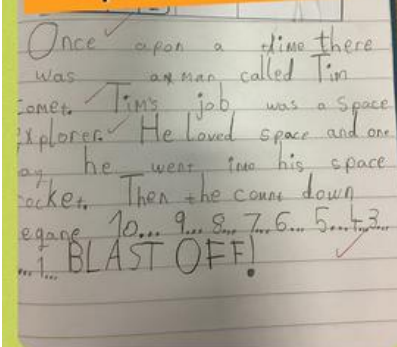 Once apon a time there
was a man called Tim
comet. Tim's job was a Space
explorer. He Loved space and one
ay he went into his space
ocket. Then the count down
egane 10... 9... 8... 7... 6... 5...4..3...
...1... BLAST OFF!